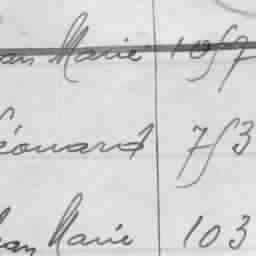 an Marie 1057
éonard 753
ean Marie 103